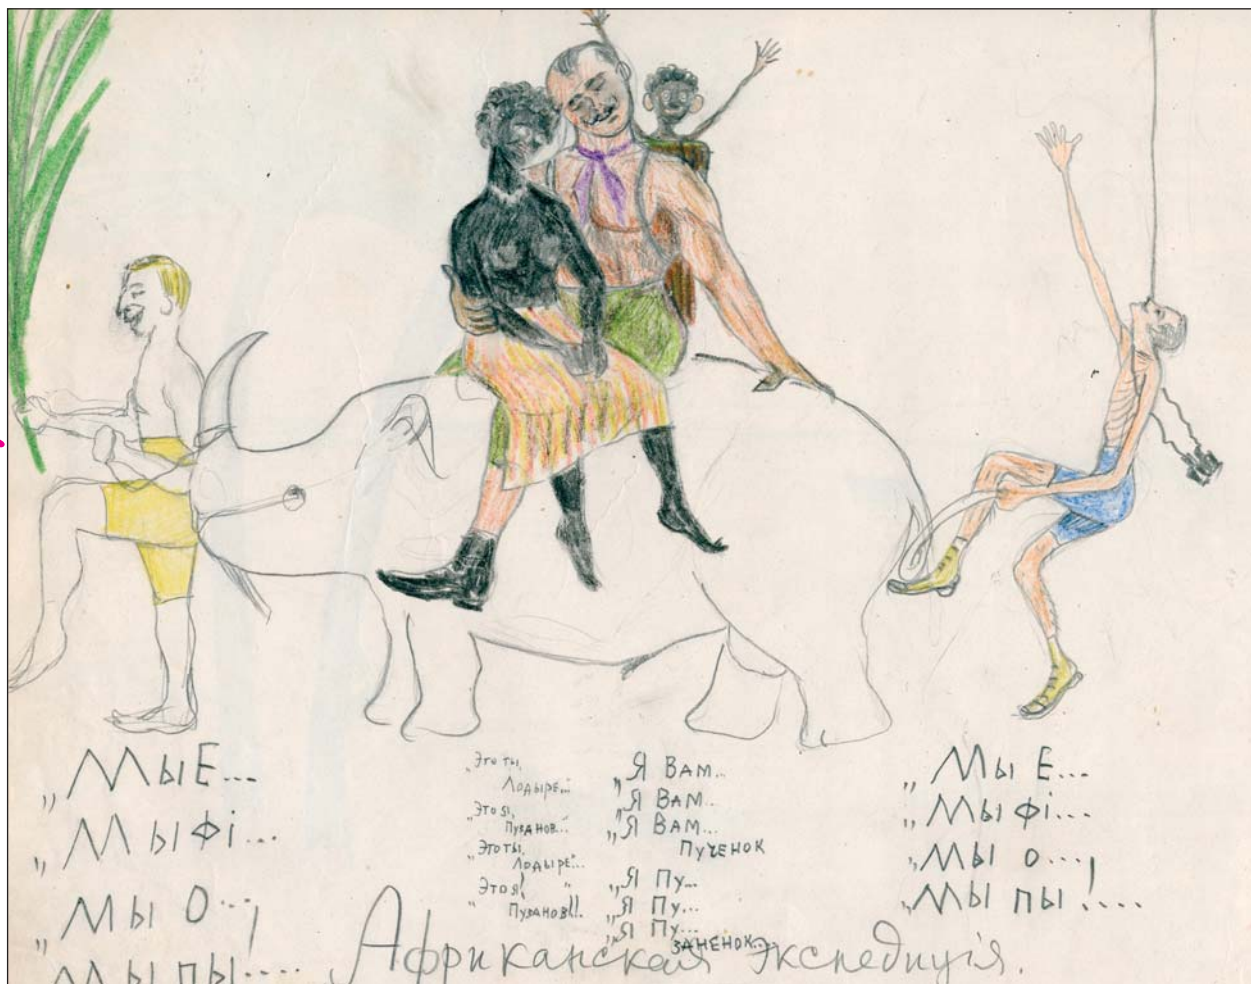 „Мы Е...
„Мы фі...
„Мы о...,
„Мы пы....
„Это ты,
Лодыре..."
„Это я,
Пузанов..."
„Это ты,
Лодыре..."
„Это я!
Пузанов!!.
„Я Вам...
„Я Вам..
„Я Вам...
Пученок
„Я Пу...
„Я Пу...
„Я Пу...
Заненок...
„Мы Е...
„Мы фі...
„Мы о...,
„Мы пы!....
Африканская Экспедиція.